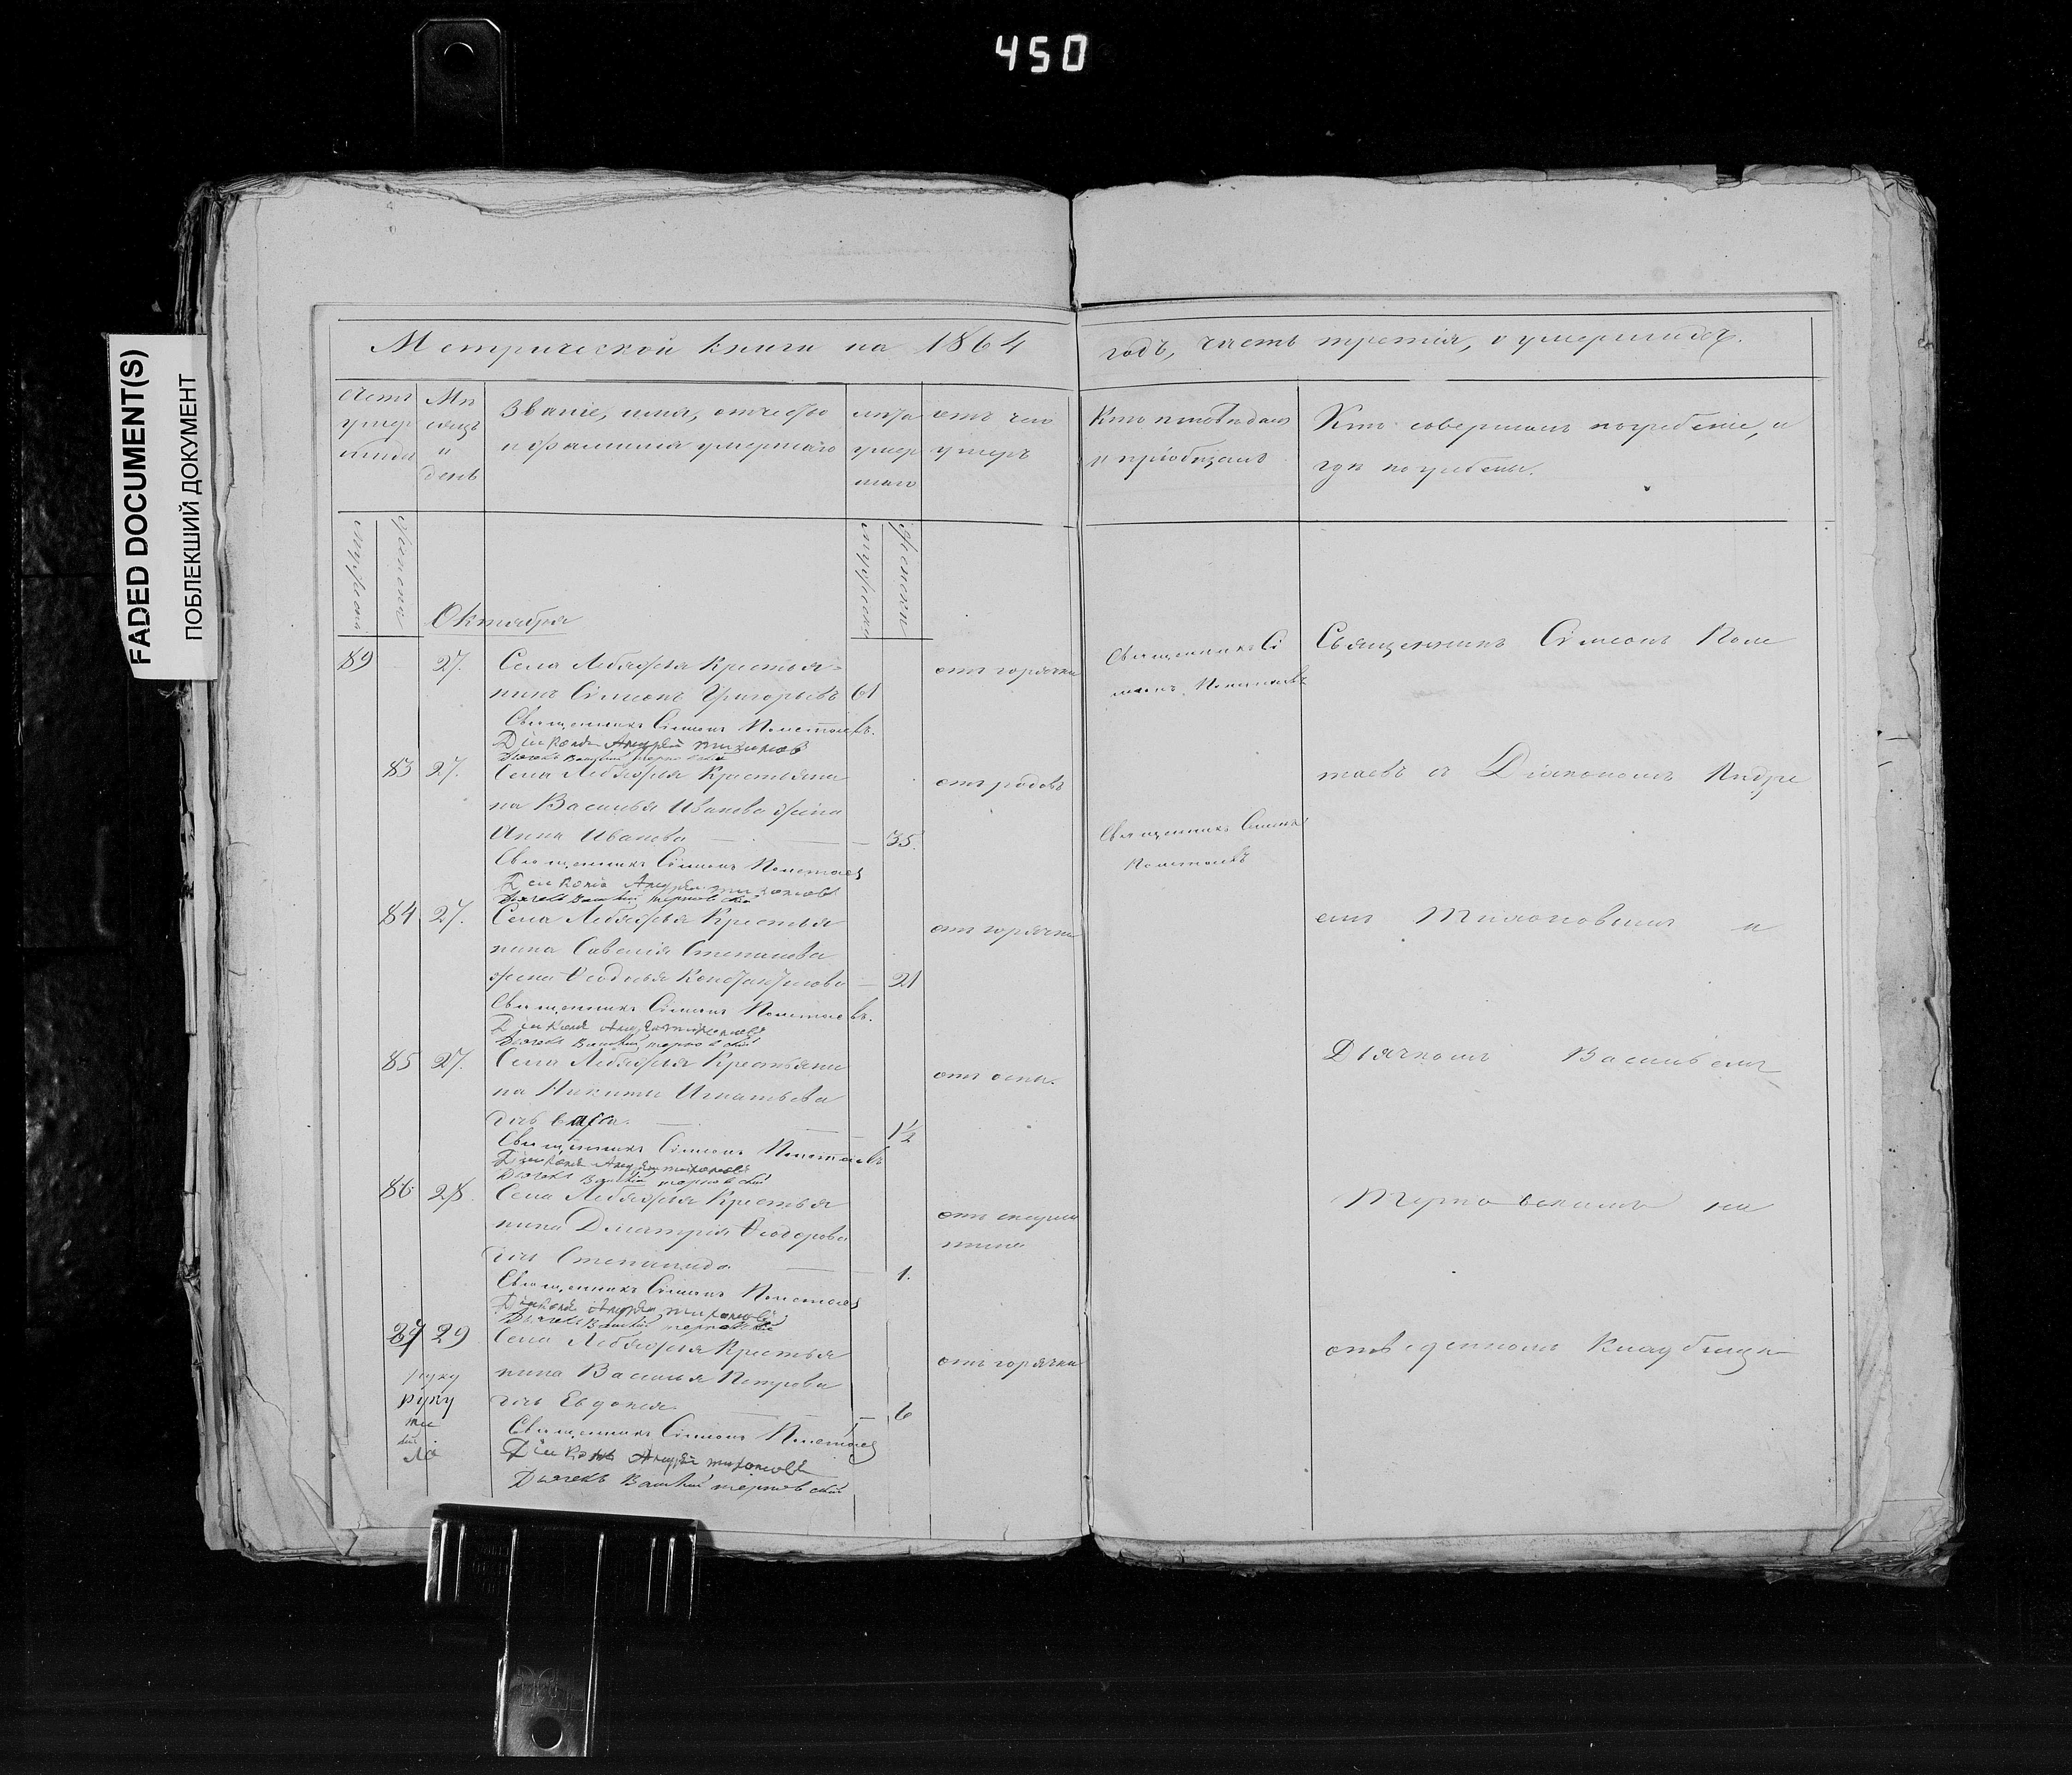 450
FADED DOCUMENT(S)
ПОБЛЕКШИЙ ДОКУМЕНТ
Метрической книги на 1864
годъ, часть третія, о умершихъ.
Счетъ умер шихъ
Мѣ сяцъ и день
Званіе, имя, отчество
и фамилія умершаго
лѣта умер шаго
отъ чего
умеръ
Кто исповѣдалъ
и пріобщалъ
Кто совершалъ погребеніе, и
гдѣ погребены.
мужеска
женска
мужеска
женска
Октября
89 27. Села Лебяжья Крестья-
нинъ Симеонъ Григорьевъ 61
отъ горячки
Священникъ Си
меонъ Полетаевъ
Священникъ Симеонъ Поле
Священникъ Симеонъ Полетаевъ.
Діаконъ Андрей Тихоновъ
Дьячекъ Василий Терновский
83 27. Села Лебяжья Крестьяни
на Василья Иванова жена
Анна Иванова — 35.
отъ родовъ
Священникъ Симеонъ
Полетаевъ
таевъ съ Діакономъ Андре
Священникъ Симеонъ Полетаевъ
Діаконъ Андрей Тихоновъ
Дьячекъ Василий Терновский
84 27. Села Лебяжья Крестья
нина Савелія Степанова
жена 21
отъ горячки
емъ Тихоновымъ и
Священникъ Симеонъ Полетаевъ.
Діаконъ Андрей Тихоновъ
Дьячекъ Василий Терновский
85 27. Села Лебяжья Крестьяни
на Никиты Игнатьева
дчь — 1½
отъ оспы.
Дьячкомъ Васильемъ
Священникъ Симеонъ Полетаевъ
Діаконъ Андрей Тихоновъ
Дьячекъ Василий Терновский
86 28. Села Лебяжья Крестья
нина Димитрія Ѳеодорова
дчь Степанида — 1.
отъ
Терновскимъ на
Священникъ Симеонъ Полетаевъ
Діаконъ Андрей Тихоновъ
Дьячекъ Василий Терновский
87 29 Села Лебяжья Крестья
нина Василья Петрова
дчь Евдокія. — 6
отъ горячки
отведенномъ Кладбищѣ
руку
руку
Священникъ Симеонъ Полетаевъ
Діаконъ Андрей Тихоновъ
Дьячекъ Василий Терновский